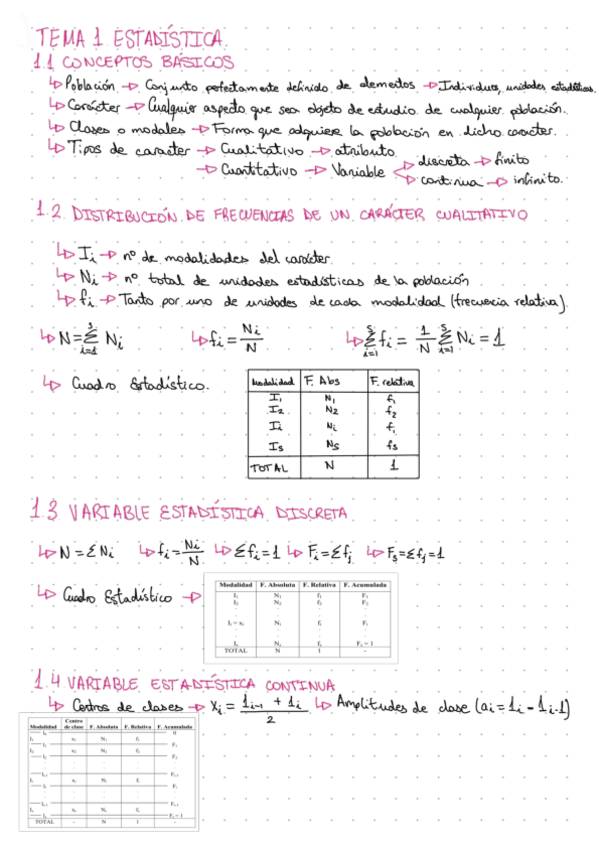 TEMA 1 ESTADÍSTICA.
1.1 CONCEPTOS BÁSICOS
↳ Población → Conjunto perfectamente definido de elementos → Individuos, unidades estadísticas.
↳ Carácter → Cualquier aspecto que sea objeto de estudio de cualquier población.
↳ Clases o modales → Forma que adquiere la población en dicho caracter.
↳ Tipos de caracter → Cualitativo → atributo
→ Cuantitativo → Variable
discreta → finito
continua → infinito.
1.2 DISTRIBUCIÓN DE FRECUENCIAS DE UN CARÁCTER CUALITATIVO
↳ Ii → nº de modalidades del carácter.
↳ Ni → nº total de unidades estadísticas de la población
↳ fi → Tanto por uno de unidades de cada modalidad (frecuencia relativa).
↳ N = Σ Ni ↳ fi = Ni/N ↳ Σ fi = 1/N Σ Ni = 1
↳ Cuadro Estadístico.
Modalidad F. Abs F. relativa
I1 N1 f1
I2 N2 f2
Ii Ni fi
Is Ns fs
TOTAL N 1
1.3 VARIABLE ESTADÍSTICA DISCRETA
↳ N = Σ Ni ↳ fi = Ni/N ↳ Σfi = 1 ↳ Fi = Σfj ↳ Fs = Σfj = 1
↳ Cuadro Estadístico →
Modalidad F. Absoluta F. Relativa F. Acumulada
I1 N1 f1 F1
I2 N2 f2 F2
Ii = xi Ni fi Fi
Is Ns fs Fs = 1
TOTAL N 1 -
1.4 VARIABLE ESTADÍSTICA CONTINUA
↳ Centros de clases → xi = (li-1 + li)/2 ↳ Amplitudes de clase (ai = li - li-1)
Modalidad Centro de clase F. Absoluta F. Relativa F. Acumulada
TOTAL - N 1 -